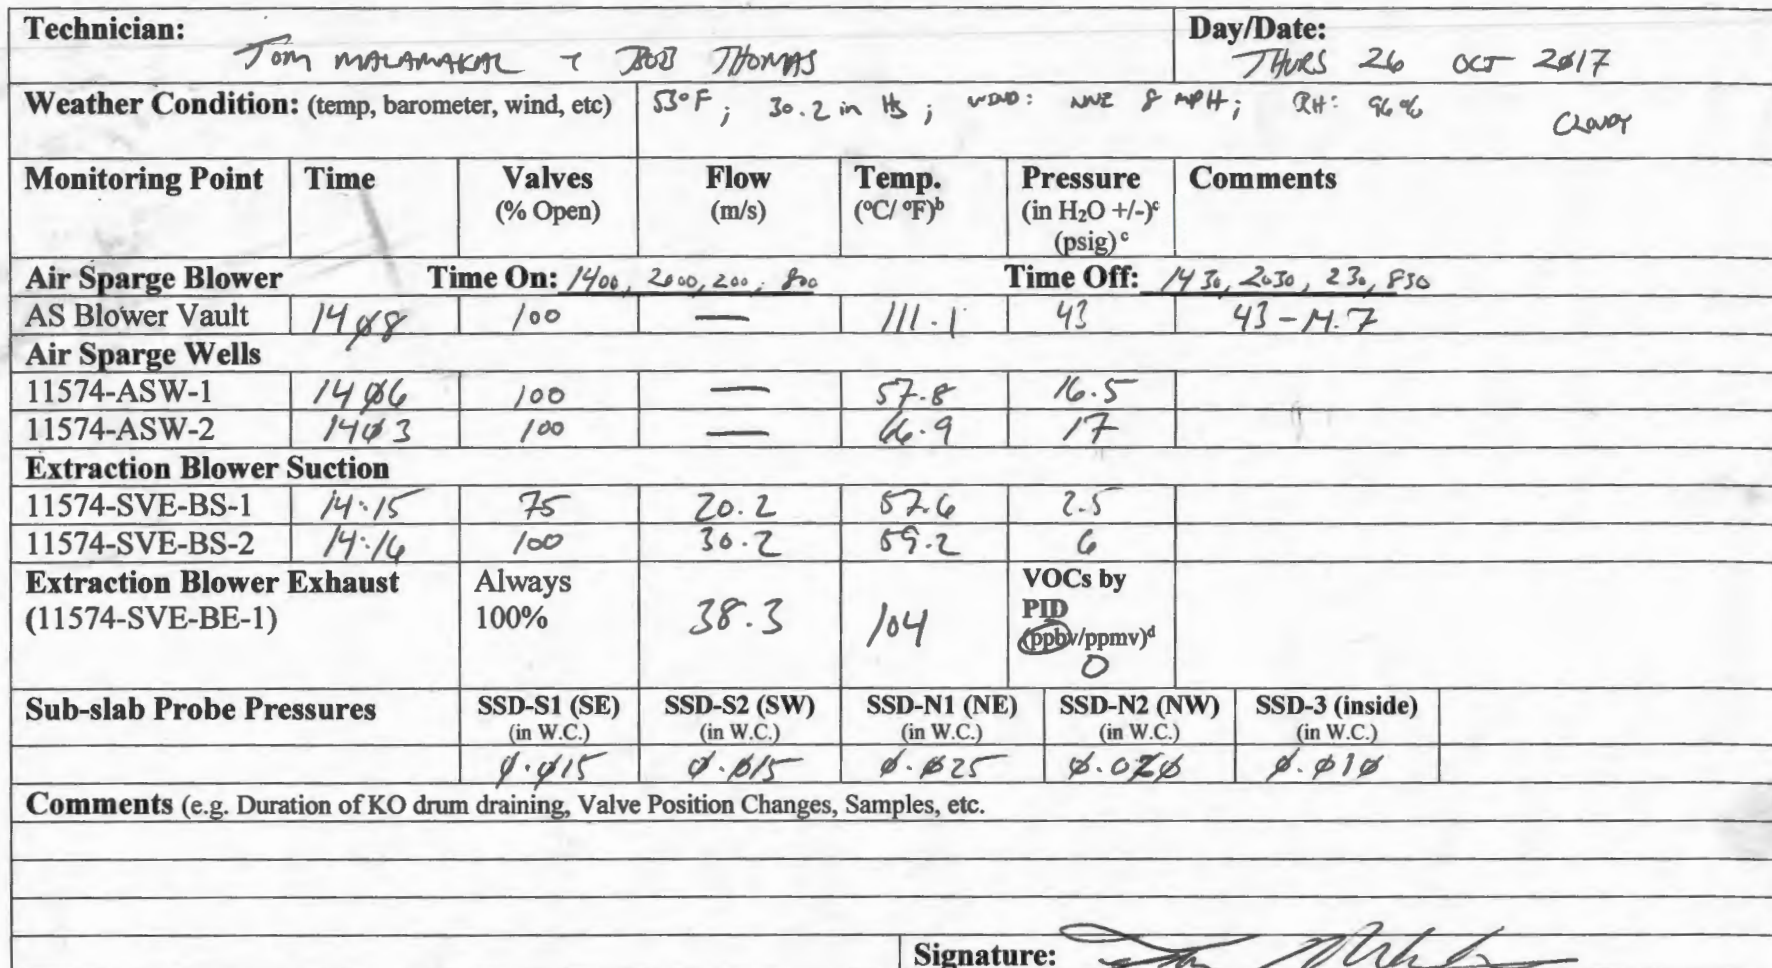 Technician: Day/Date:
Tom MALAMAKAL + BOB THOMAS THURS 26 OCT 2017
Weather Condition: (temp, barometer, wind, etc) 53°F; 30.2 in Hg; WIND: NNE 8 MPH; RH: 96% CLOUDY
Monitoring Point Time Valves (% Open) Flow (m/s) Temp. (°C/ °F)b Pressure (in H2O +/-)c (psig) c Comments
Air Sparge Blower Time On: 1400, 2000, 200, 800 Time Off: 1430, 2030, 230, 830
AS Blower Vault 1408 100 — 111.1 43 43-14.7
Air Sparge Wells
11574-ASW-1 1406 100 — 57.8 16.5
11574-ASW-2 1403 100 — 66.9 17
Extraction Blower Suction
11574-SVE-BS-1 14:15 75 20.2 57.6 2.5
11574-SVE-BS-2 14:16 100 30.2 59.2 6
Extraction Blower Exhaust (11574-SVE-BE-1) Always 100% 38.3 104 VOCs by PID (ppbv/ppmv)d 0
Sub-slab Probe Pressures SSD-S1 (SE) (in W.C.) SSD-S2 (SW) (in W.C.) SSD-N1 (NE) (in W.C.) SSD-N2 (NW) (in W.C.) SSD-3 (inside) (in W.C.)
0.015 0.015 0.025 0.020 0.010
Comments (e.g. Duration of KO drum draining, Valve Position Changes, Samples, etc.
Signature: